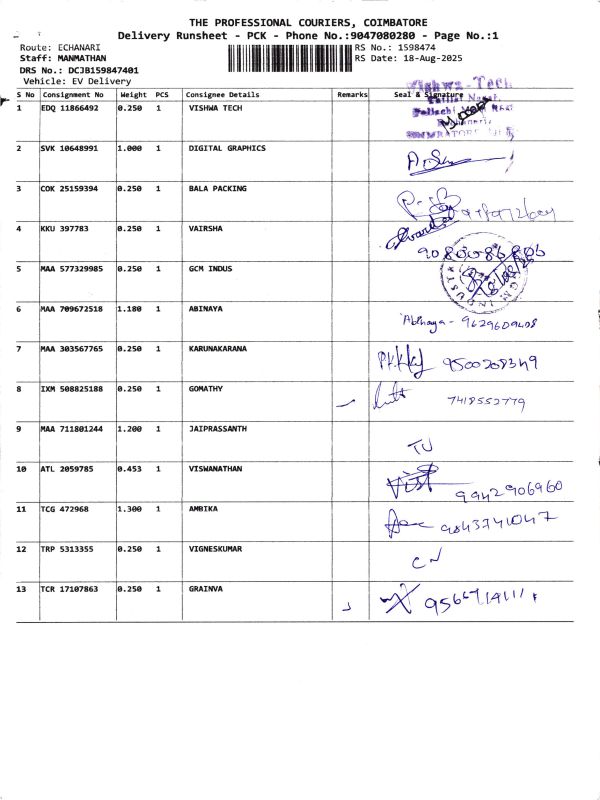 THE PROFESSIONAL COURIERS, COIMBATORE
Delivery Runsheet - PCK - Phone No.:9047080280 - Page No.:1
Route: ECHANARI RS No.: 1598474
Staff: MANMATHAN RS Date: 18-Aug-2025
DRS No.: DCJB159847401
Vehicle: EV Delivery
S No Consignment No Weight PCS Consignee Details Remarks Seal & Signature
Vishwa-Tech
1 EDQ 11866492 0.250 1 VISHWA TECH
2 SVK 10648991 1.000 1 DIGITAL GRAPHICS
3 COK 25159394 0.250 1 BALA PACKING
4 KKU 397783 0.250 1 VAIRSHA
5 MAA 577329985 0.250 1 GCM INDUS
6 MAA 709672518 1.180 1 ABINAYA Abinaya - 9629609408
7 MAA 303567765 0.250 1 KARUNAKARANA 9500208349
8 IXM 508825188 0.250 1 GOMATHY 7418552779
9 MAA 711801244 1.200 1 JAIPRASSANTH TU
10 ATL 2059785 0.453 1 VISWANATHAN 9942906960
11 TCG 472968 1.300 1 AMBIKA 9843741047
12 TRP 5313355 0.250 1 VIGNESKUMAR CN
13 TCR 17107863 0.250 1 GRAINVA